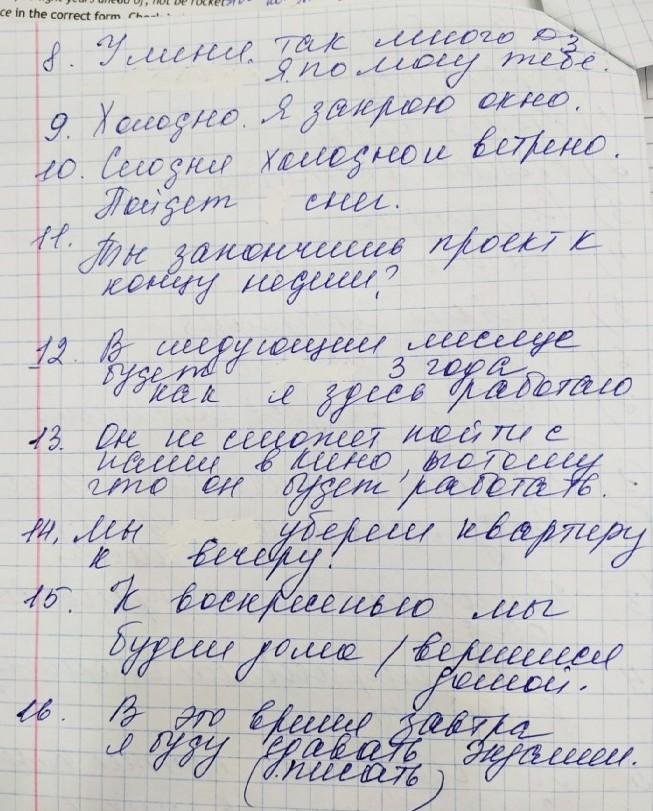 ce in the correct form.
8. У меня так много дз
Я помогу тебе.
9. Холодно. Я закрою окно.
10. Сегодня холодно и ветрено.
Пойдет снег.
11. Ты закончишь проект к
концу недели?
12. В следующем месяце
будет 3 года
как я здесь работаю
13. Он не сможет пойти с
нами в кино, потому
что он будет работать.
14. Мы уберем квартиру
к вечеру.
15. К воскресенью мы
будем дома / вернемся
домой.
16. В это время завтра
я буду сдавать экзамен.
(писать)